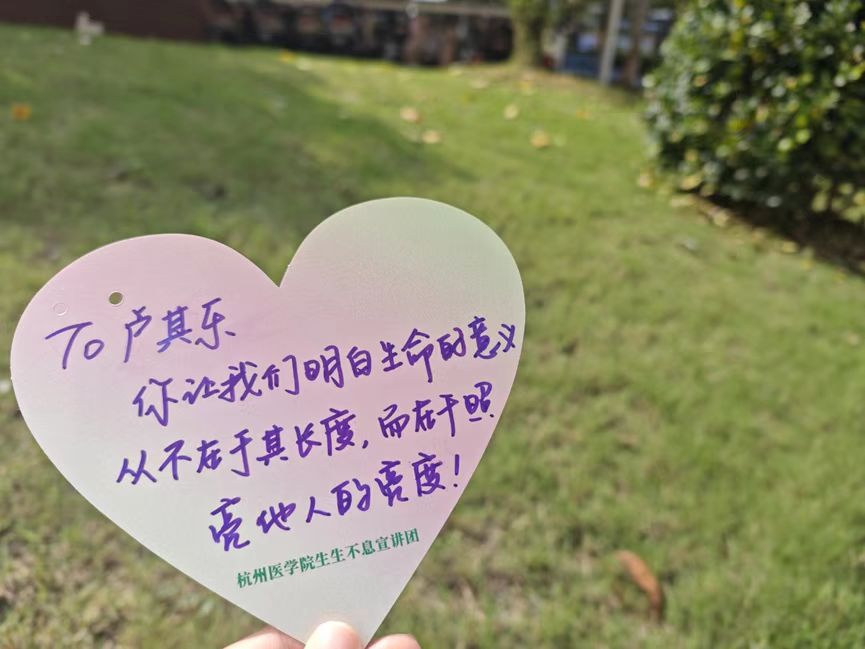 To 卢其乐
你让我们明白生命的意义
从不在于其长度,而在于照
亮他人的亮度!
杭州医学院生生不息宣讲团